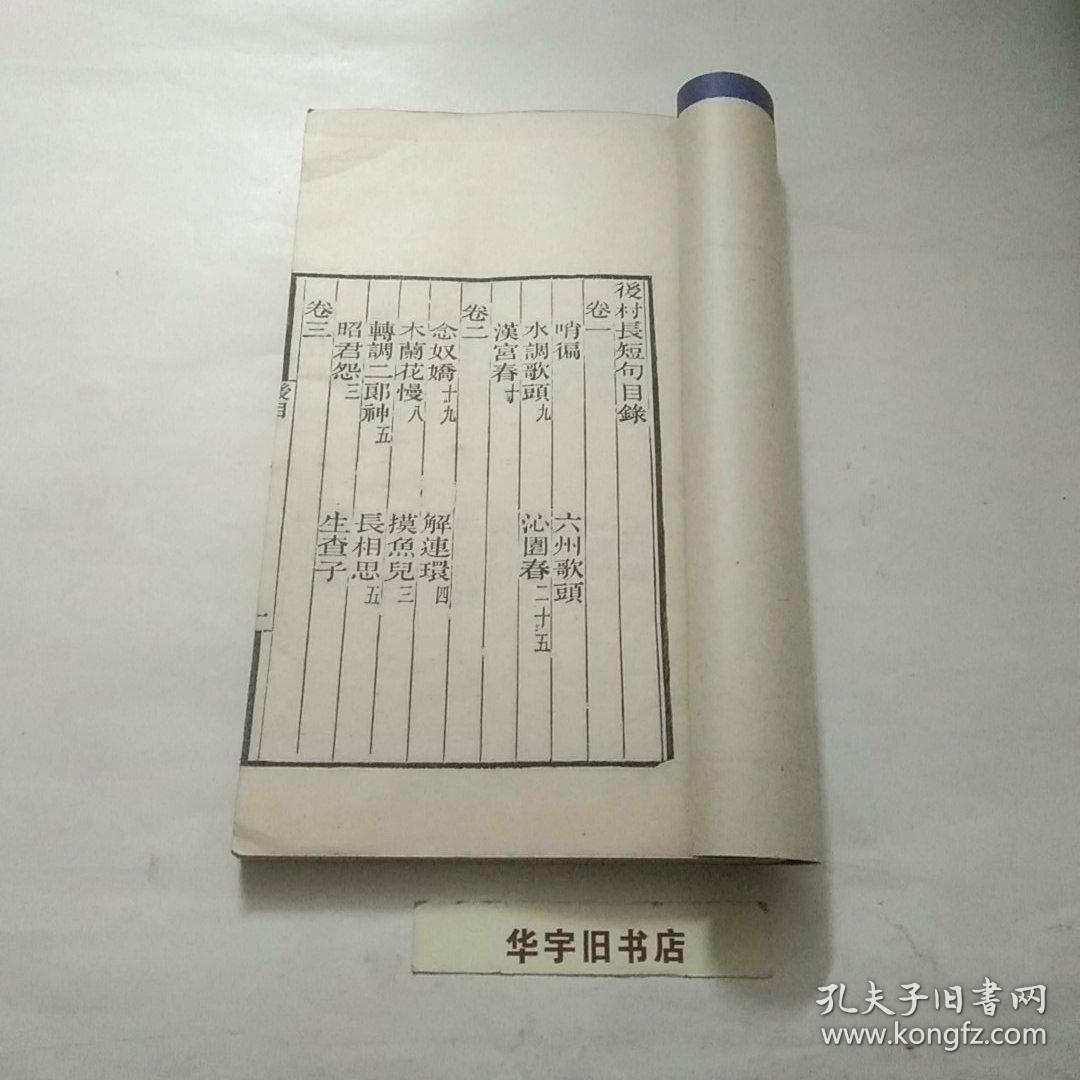 後村長短句目錄
卷一
哨徧 六州歌頭
水調歌頭九 沁園春二十五
漢宮春十
卷二
念奴嬌十九 解連環四
木蘭花慢八 摸魚兒三
轉調二郎神五 長相思五
昭君怨三 生查子
卷三
後目
一
华宇旧书店
孔夫子旧書网
www.kongfz.com